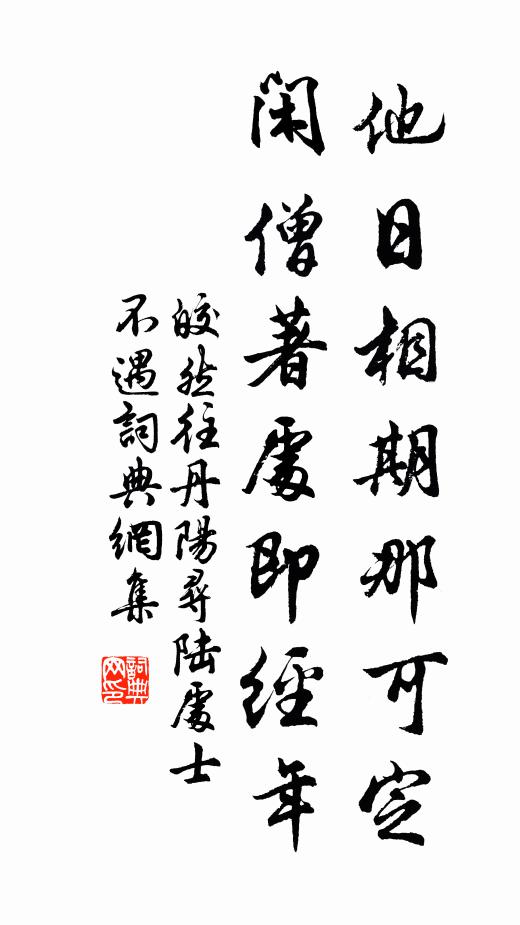 他日相期那可定
閑僧著處即經年
皎然往丹陽尋陸處士
不遇詞典網集
詞典网印